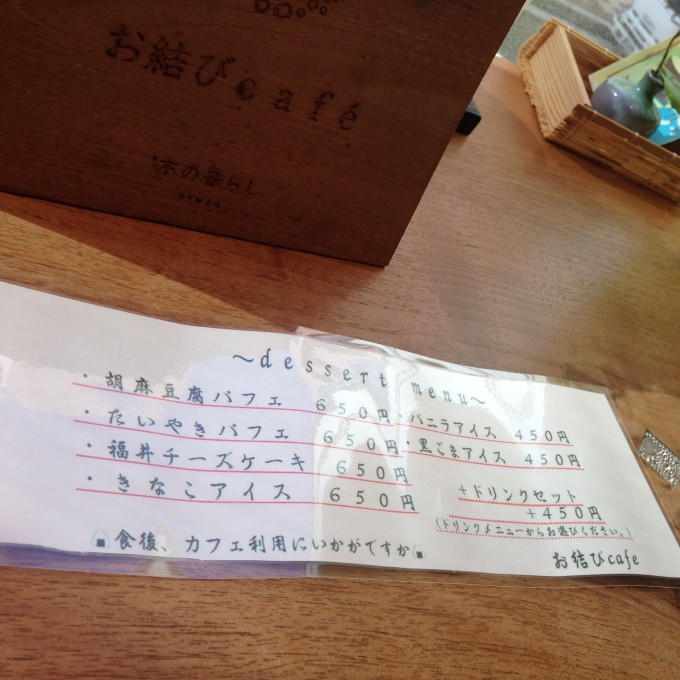 お結びcafé
木の暮らし
～dessert menu～
・胡麻豆腐パフェ 650円
・たいやきパフェ 650円
・福井チーズケーキ 650円
・きなこアイス 650円
・バニラアイス 450円
・黒ごまアイス 450円
＋ドリンクセット
＋450円
（ドリンクメニューからお選びください。）
食後、カフェ利用にいかがですか
お結びcafe